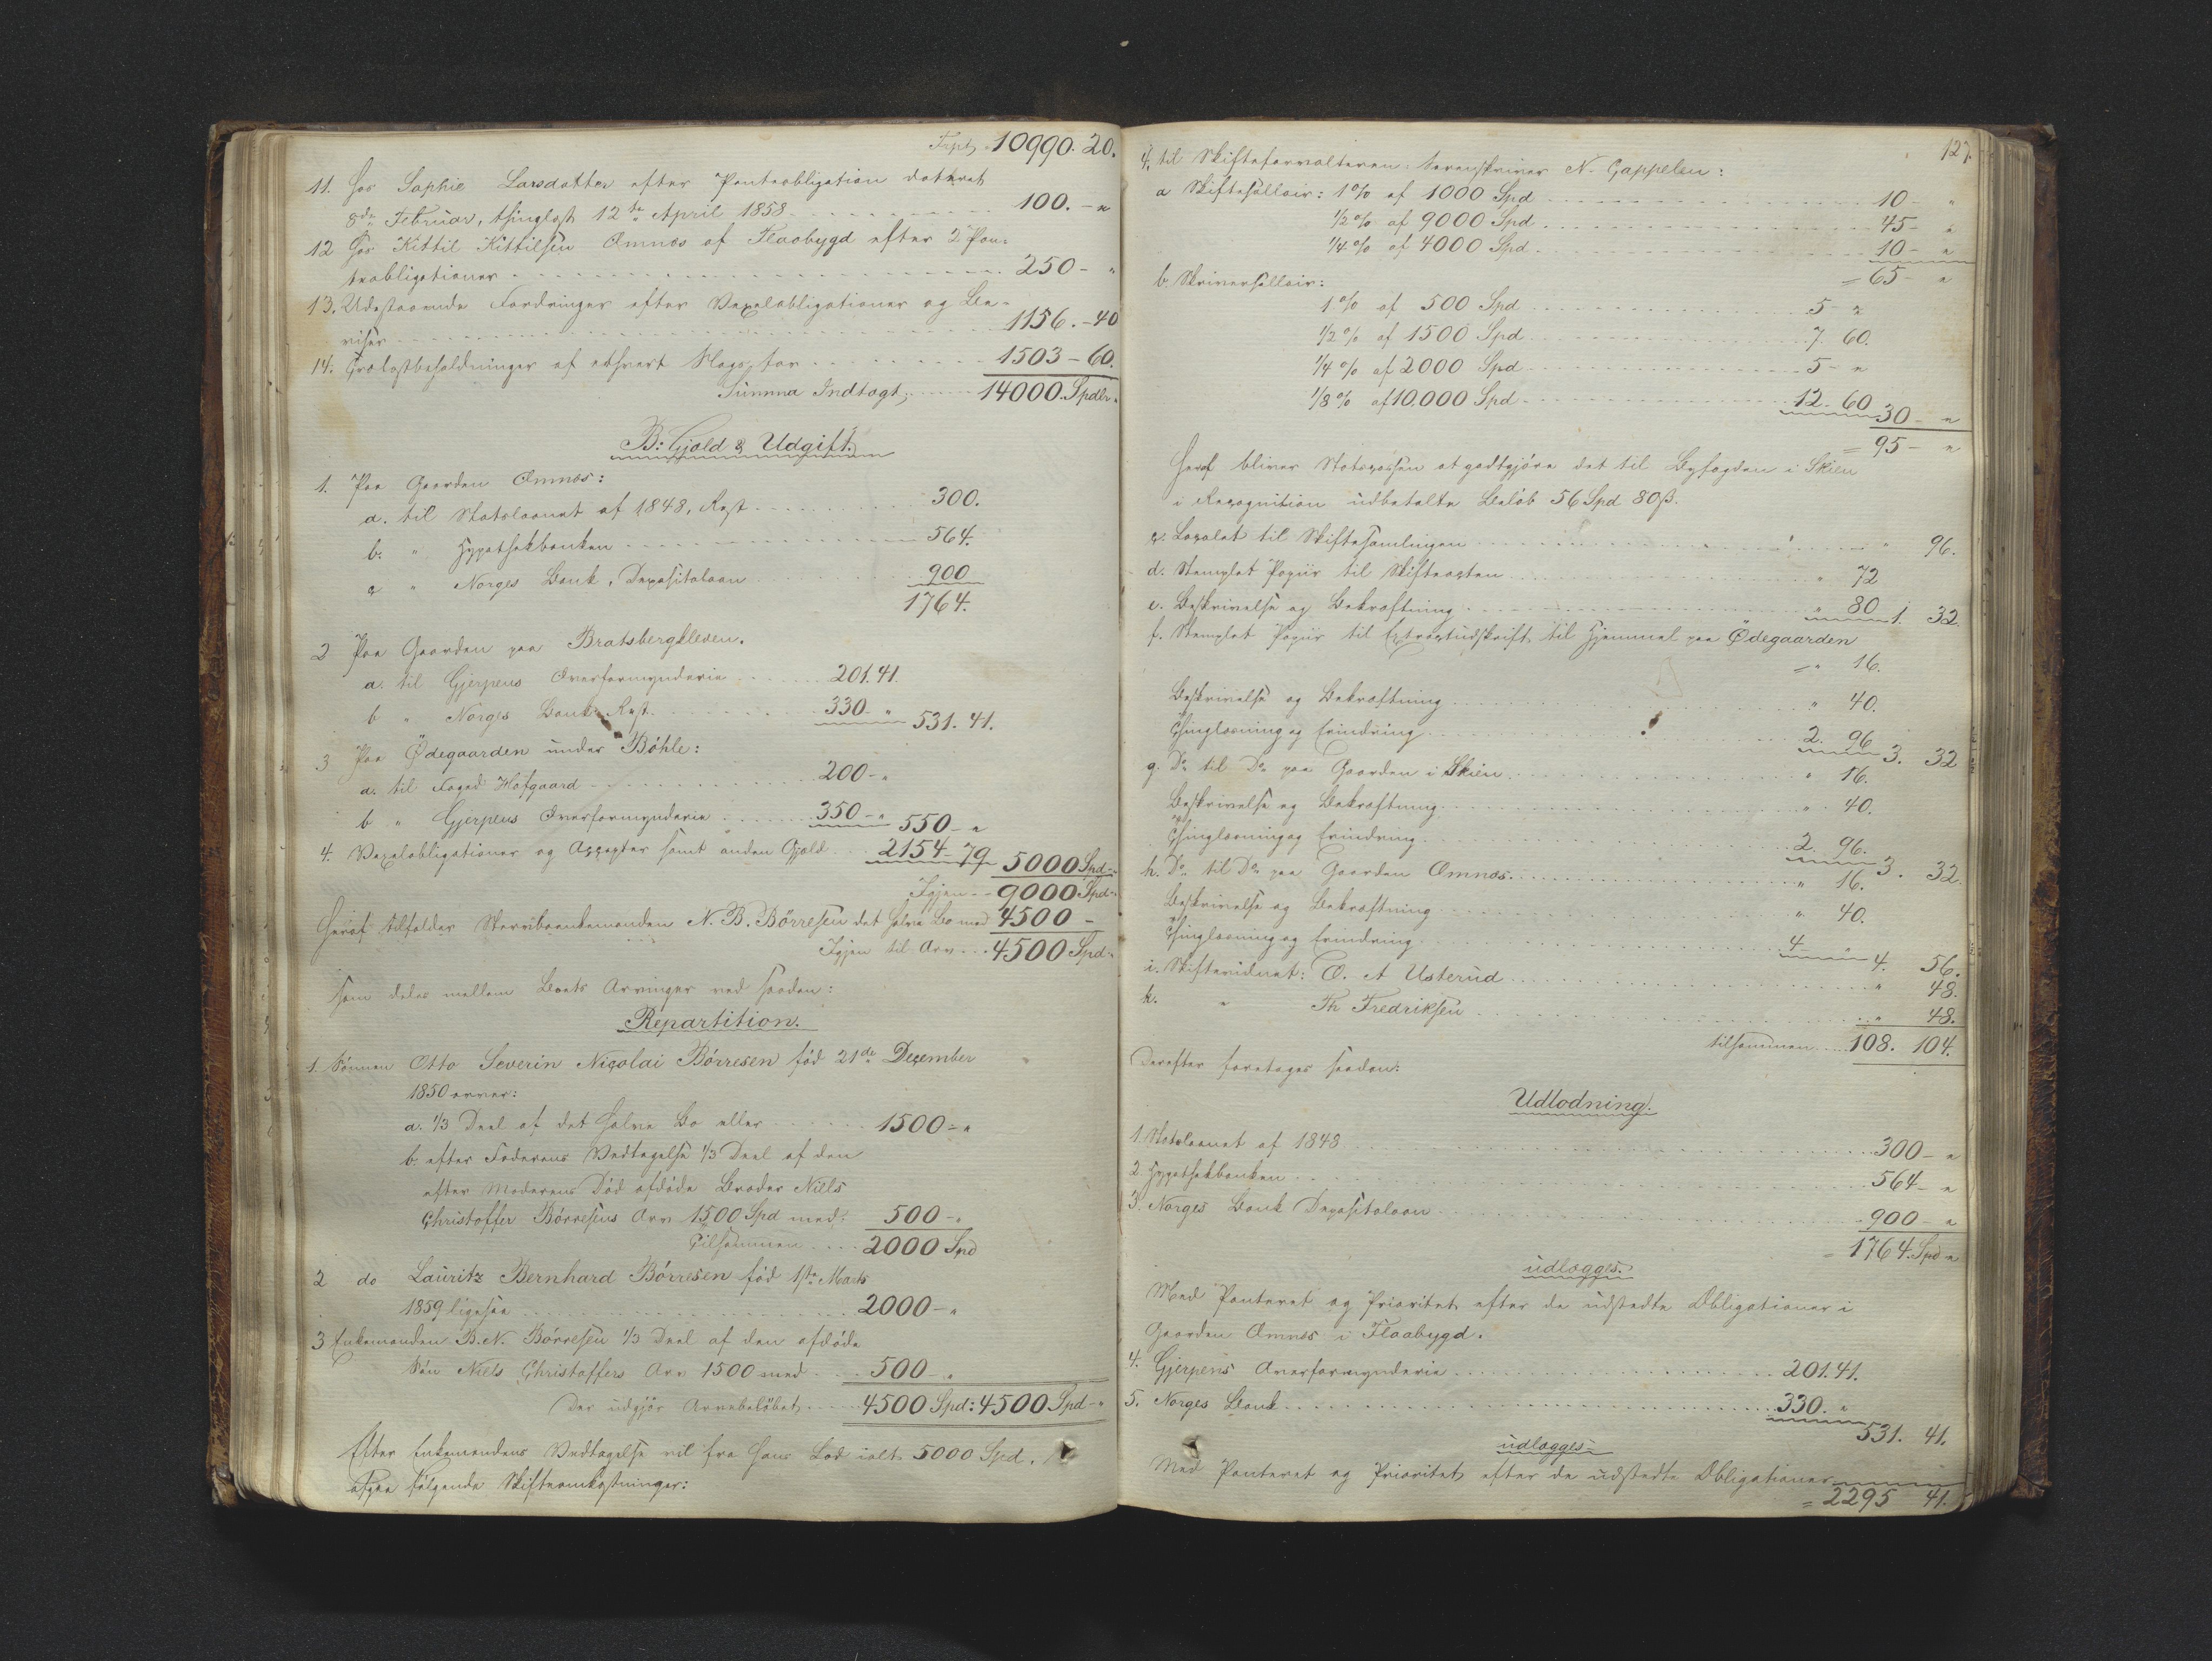 Trpt. 10990. 20.
11. Hos Sophie Larsdatter efter Panteobligation dateret
8de Februar, thinglæst 12te April 1858 100. - "
12 Hos Kittil Kittilsen Omnæs af Flaabygd efter 2 Pan=
teobligationer 250 - "
13. Udestaaende Fordringer efter Vexelobligationer og Be=
viser 1156. - 40
14. Grælastbeholdninger af ethvert Slags, for 1503 - 60.
Summa Indtægt, 14000. Spdlr.
B: Gjæld & Udgift.
1. Paa Gaarden Omnæs:
a. til Statslaanet af 1848, Rest 300.
b. " Hypothekbanken 564.
c " Norges Bank, Depositolaan 900
1764.
2 Paa Gaarden paa Bratsbergkleven.
a. til Gjerpens Overformynderie 201. 41.
b " Norges Bank Rest. 330 " 531. 41.
3 Paa Ödegaarden under Böhle:
a. til Foged Hofgaard 200 - "
b " Gjerpens Overformynderie 350 - " 550 - "
4. Vexelobligationer og Accepter samt anden Gjæld 2154 - 79 5000 Spd - "
Igjen - - 9000 Spd - "
Heraf tilfalder Stervboenkemanden N. B. Börresen det halve Bo med 4500 -
Igjen til Arv 4500 Spd - "
som deles mellem Boets Arvinger ved saadan:
Repartition.
1. Sønnen Otto Severin Nicolai Börresen född 21de December
1850 arver:
a. 1/3 Deel af det halve Bo eller 1500 - "
b. efter Faderens Vedtagelse 1/3 Deel af den
efter Moderens Død afdøde Broder Niels
Christoffer Börresens Arv 1500 Spd med: 500 - "
Tilsammen 2000 Spd
2 do Lauritz Bernhard Börresen född 1ste Marts
1859 ligesaa 2000 - "
3 Enkemanden B. N. Börresen 1/3 Deel af den afdøde
Søn Niels Christoffers Arv 1500 med 500 - "
Der udgjør Arvebeløbet 4500 Spd: 4500 Spd - "
Efter Enkemandens Vedtagelse vil fra hans Lod ialt 5000 Spd.
afgaa følgende Skifteomkostninger:
127.
4. til Skifteforvalteren Sorenskriver N. Cappelen:
a Skiftesallair: 1% af 1000 Spd 10 - "
1/2% af 9000 Spd 45 - "
1/4% af 4000 Spd 10 - "
= 65 - "
b. Skriversallair:
1% af 500 Spd 5 - "
1/2% af 1500 Spd 7. 60.
1/4% af 2000 Spd 5 - "
1/8% af 10.000 Spd 12. 60 30 - "
= 95 - "
Heraf bliver Statscassen at godtgjöre det til Byfogden i Skien
i Recognition udbetalte Belöb 56 Spd 80 ß.
c. Localet til Skiftesamlingen " 96.
d. Stemplet Papiir til Skifteacten " 72
e. Beskrivelse og Bekræftning " 80 1. 32.
f. Stemplet Papiir til Extractudskrift til Hjemmel paa Ödegaarden
= " 16.
Beskrivelse og Bekræftning " 40.
Thinglæsning og Erindring 2. 96 3. 32
g. Do til Do paa Gaarden i Skien " 16.
Beskrivelse og Bekræftning " 40.
Thinglæsning og Erindring 2. 96. 3. 32.
h. Do til Do paa Gaarden Omnæs " 16.
Beskrivelse og Bekræftning " 40.
Thinglæsning og Erindring 4 " 4. 56.
i. Skiftevidnet: O. A Usterud " 48.
k. " Th Fredriksen " 48.
tilsammen 108. 104.
Derefter foretages saadan:
Udlodning.
1. Statslaanet af 1848 300 - "
2. Hypothekbanken 564 - "
3. Norges Bank Depositolaan 900 - "
= 1764. Spd "
udlægges:
Med Panteret og Prioritet efter de udstedte Obligationer i
Gaarden Omnæs i Flaabygd.
4. Gjerpens Overformynderie 201. 41.
5. Norges Bank 330. "
531. 41.
udlægges
Med Panteret og Prioritet efter de udstedte Obligationer
= 2295 41.